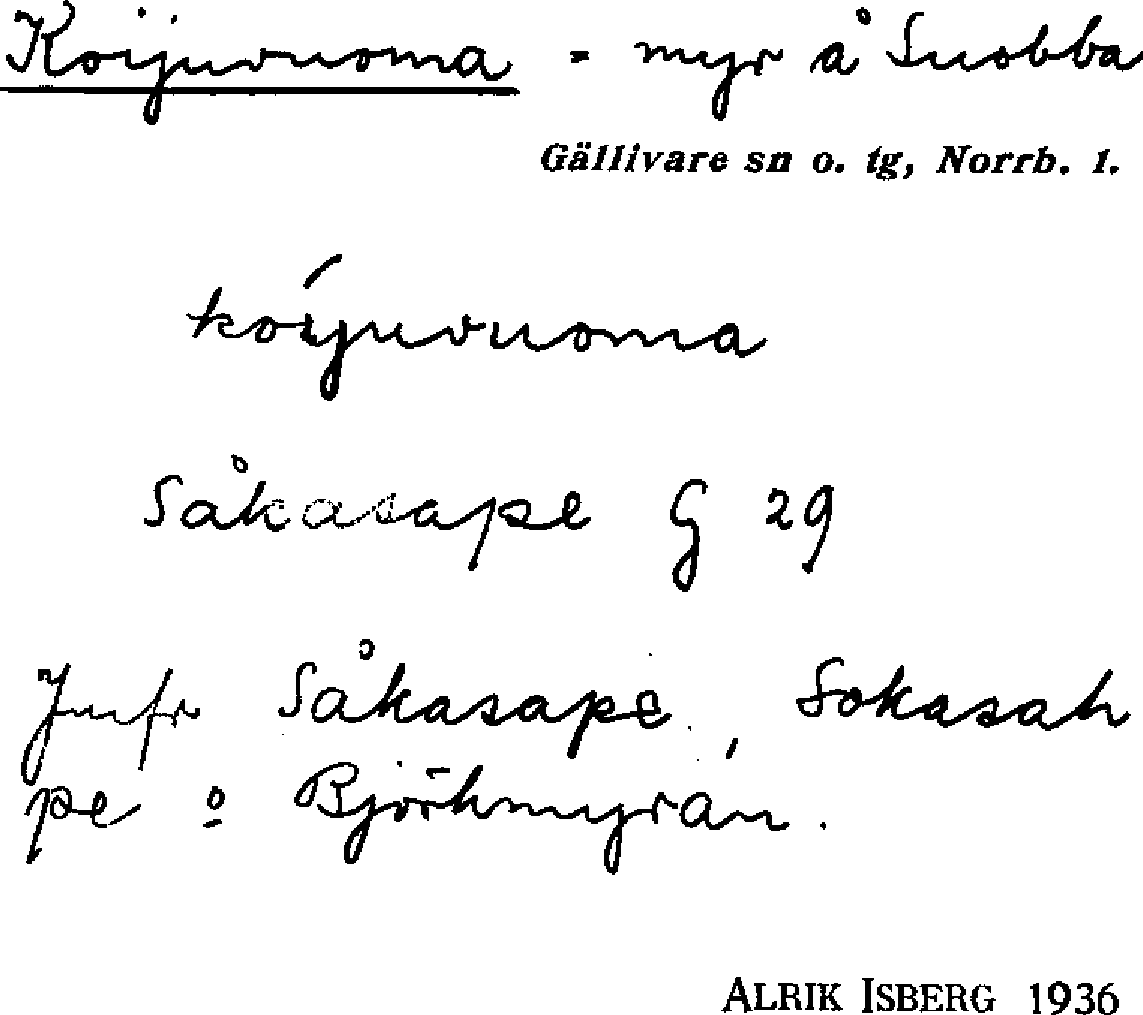 Koijuvuoma = myr å Suobba
Gällivare sn o. tg, Norrb. l.
koi̯juvuoma
Såkasape G 29
Jmfr Såkasape, Sokasah
pe o Björkmyran.
ALRIK ISBERG 1936